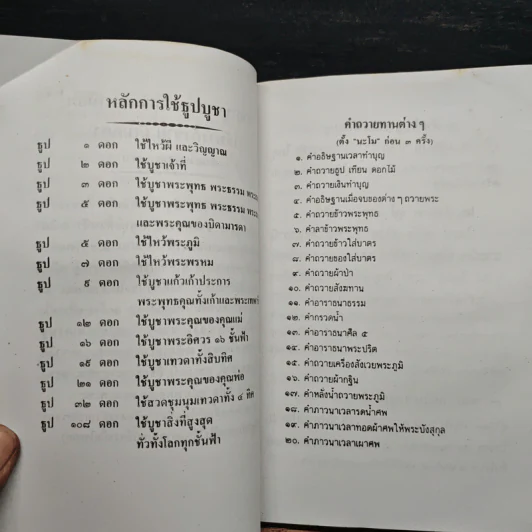 หลักการใช้ธูปบูชา
ธูป ๑ ดอก ใช้ไหว้ผี และวิญญาณ
ธูป ๒ ดอก ใช้บูชาเจ้าที่
ธูป ๓ ดอก ใช้บูชาพระพุทธ พระธรรม
ธูป ๕ ดอก ใช้บูชาพระพุทธ พระธรรม
และพระคุณของบิดามารดา
ธูป ๕ ดอก ใช้ไหว้พระภูมิ
ธูป ๗ ดอก ใช้ไหว้พระพรหม
ธูป ๙ ดอก ใช้บูชาแก้วเก้าประการ
พระพุทธคุณทั้งเก้าและพระเทพ
ธูป ๑๒ ดอก ใช้บูชาพระคุณของคุณแม่
ธูป ๑๖ ดอก ใช้บูชาพระอิศวร ๑๖ ชั้นฟ้า
ธูป ๑๙ ดอก ใช้บูชาเทวดาทั้งสิบทิศ
ธูป ๒๑ ดอก ใช้บูชาพระคุณของคุณพ่อ
ธูป ๓๒ ดอก ใช้สวดชุมนุมเทวดาทั้ง ๔ ทิศ
ธูป ๑๐๘ ดอก ใช้บูชาสิ่งที่สูงสุด
ทั่วทั้งโลกทุกชั้นฟ้า
คำถวายทานต่าง ๆ
(ตั้ง "นะโม" ก่อน ๓ ครั้ง)
๑. คำอธิษฐานเวลาทำบุญ
๒. คำถวายธูป เทียน ดอกไม้
๓. คำถวายเงินทำบุญ
๔. คำอธิษฐานเมื่อจบของต่าง ๆ ถวายพระ
๕. คำถวายข้าวพระพุทธ
๖. คำลาข้าวพระพุทธ
๗. คำถวายข้าวใส่บาตร
๘. คำถวายของใส่บาตร
๙. คำถวายผ้าป่า
๑๐. คำถวายสังฆทาน
๑๑. คำอาราธนาธรรม
๑๒. คำกรวดน้ำ
๑๓. คำอาราธนาศีล ๕
๑๔. คำอาราธนาพระปริต
๑๕. คำถวายเครื่องสังเวยพระภูมิ
๑๖. คำถวายผ้ากฐิน
๑๗. คำหลั่งน้ำถวายพระภูมิ
๑๘. คำภาวนาเวลารดน้ำศพ
๑๙. คำภาวนาเวลาทอดผ้าศพให้พระบังสุกุล
๒๐. คำภาวนาเวลาเผาศพ